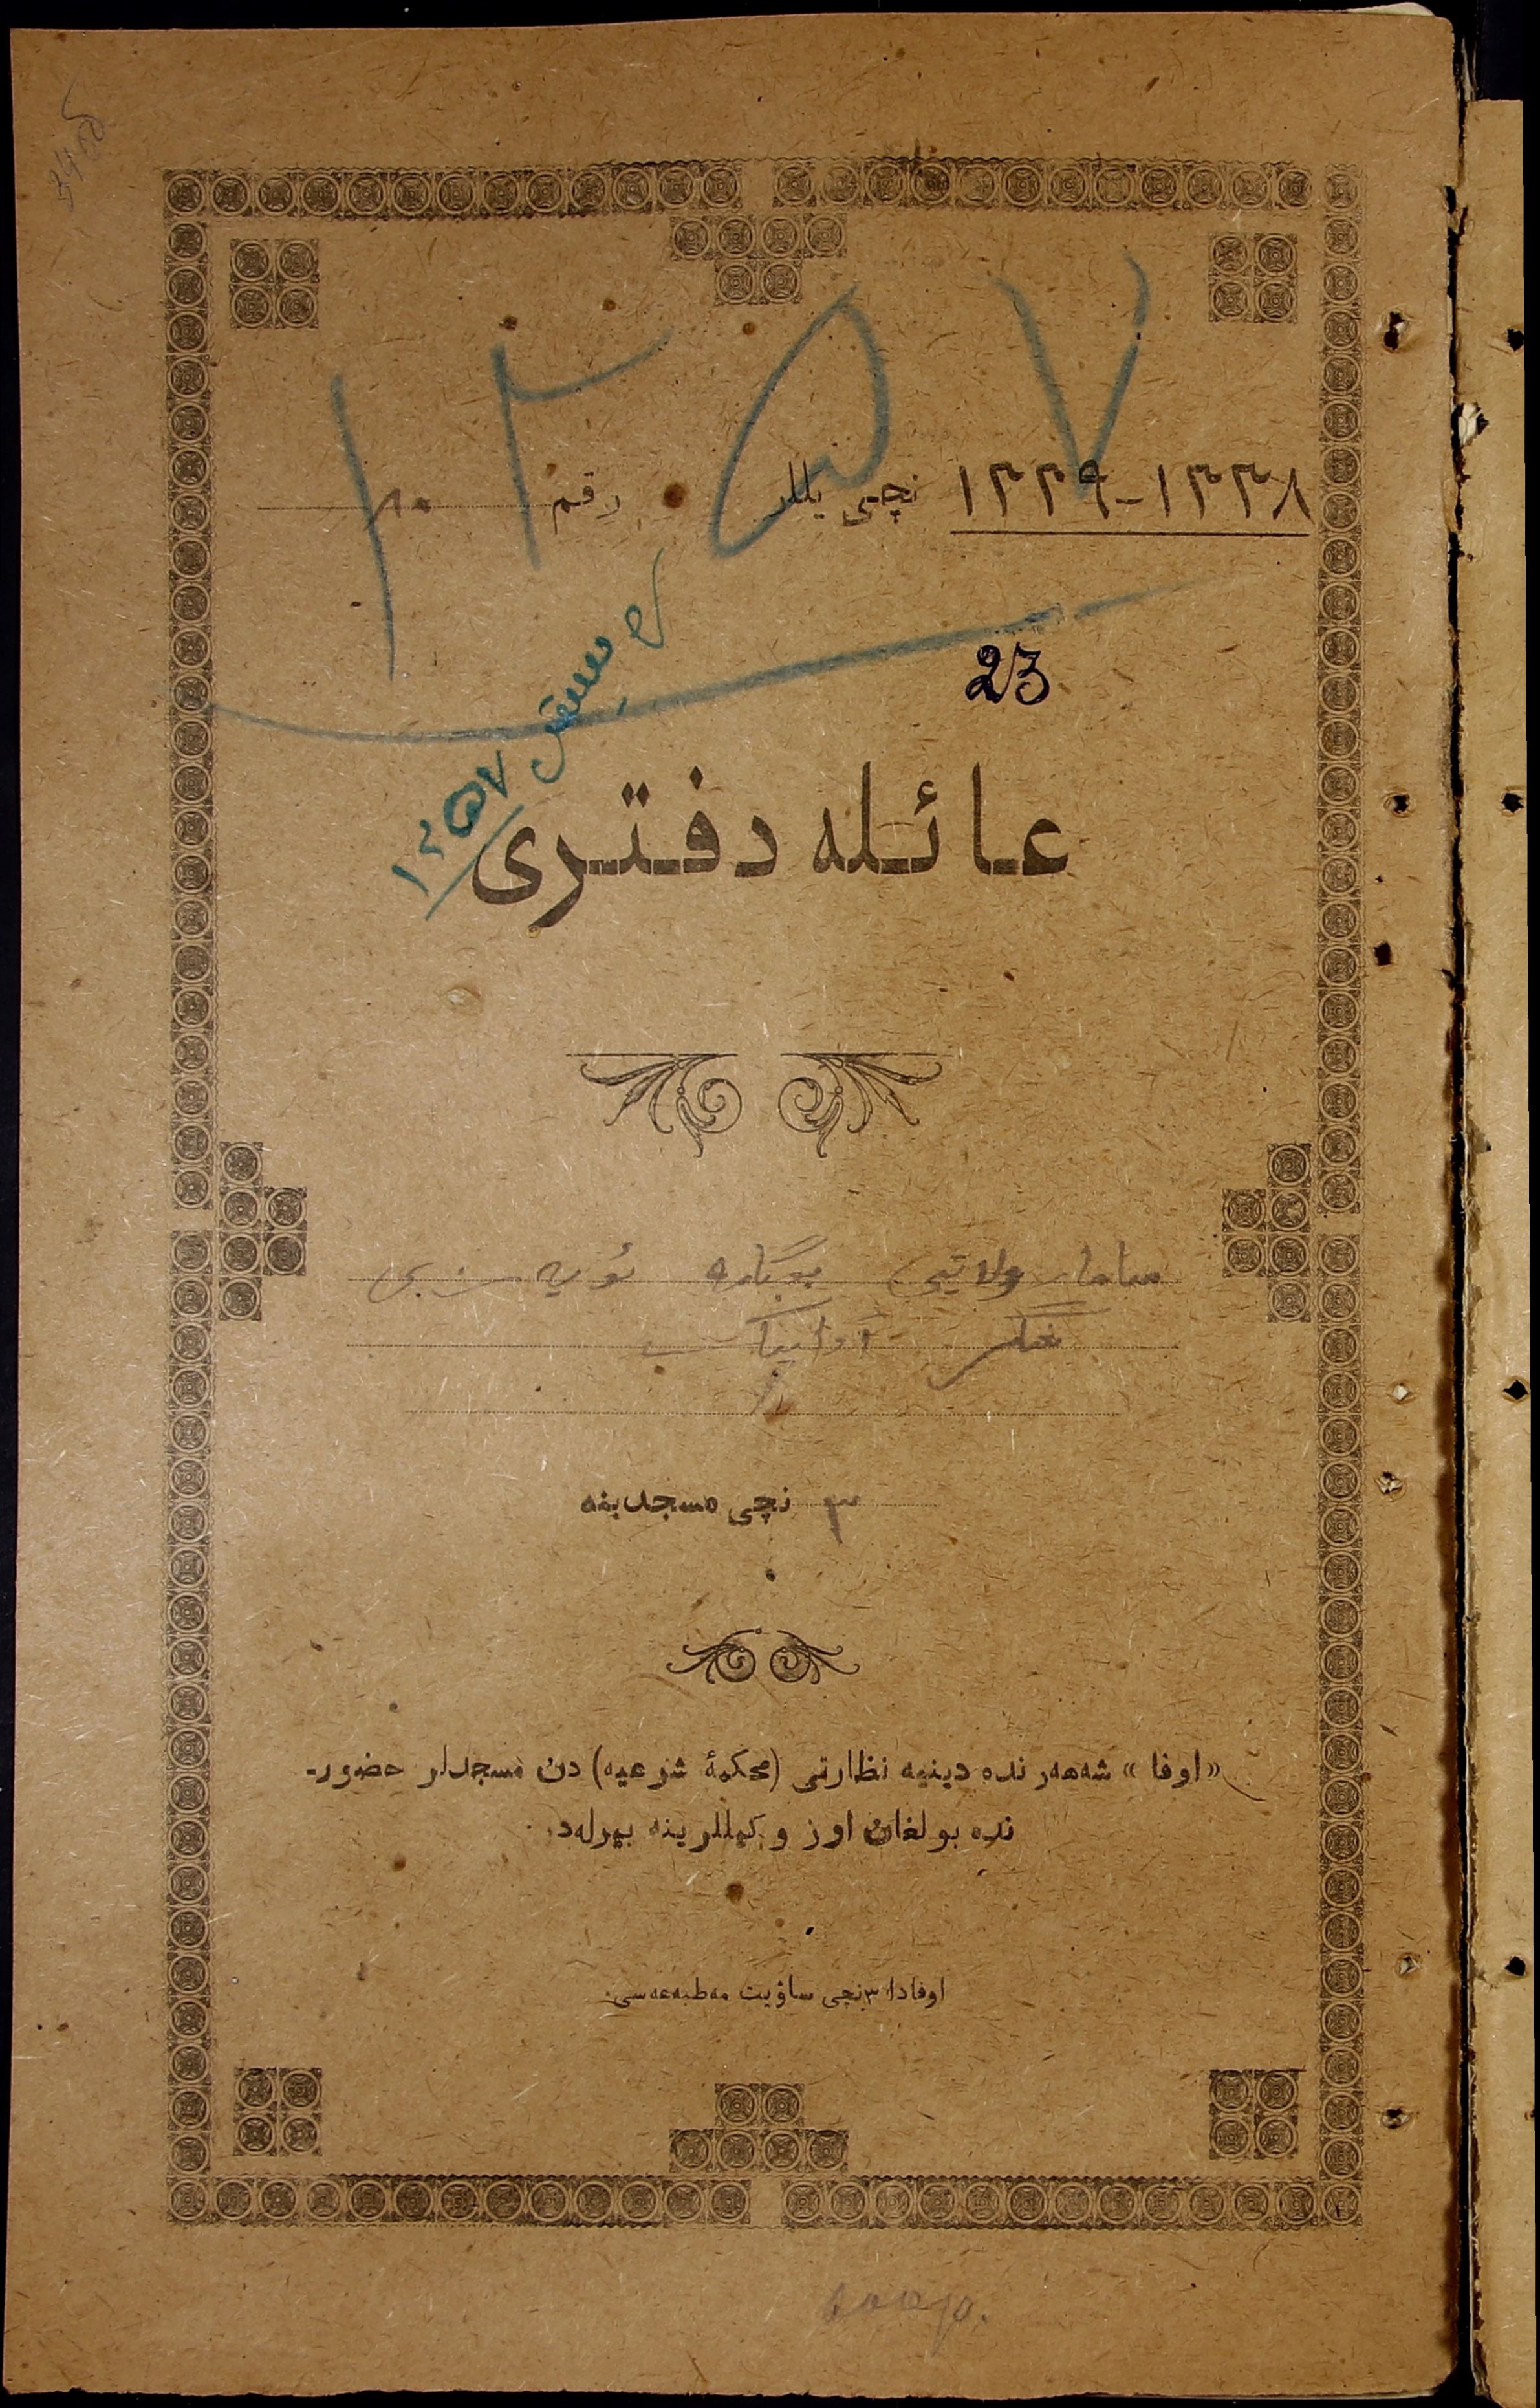 ١٢٥٧
١٣٣٨-١٣٣٩ نچی یللر رقم ٨٠
23
١٢٥٧
عائله دفتری
سامار ولایتی بوگلمه ئویه‌زی
٣ نچی مسجدینه
«اوفا» شەهەرنده دینیه نظارتی (محکمهٔ شرعیه) دن مسجدلر حضور-
نده بولغان اوز وکیللرینه بیرله‌در.
اوفادا ٣نچی ساۋیت مەطبەعەسی.